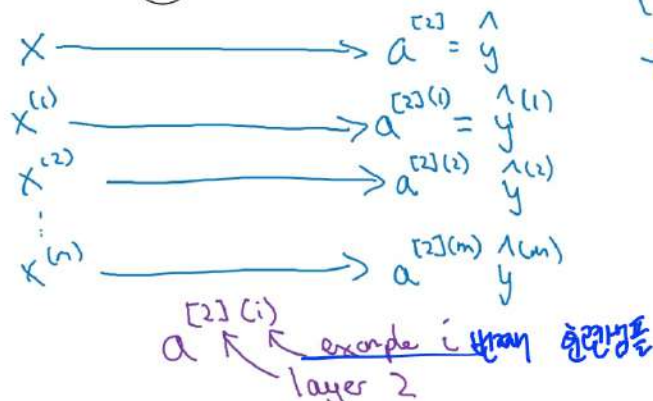 x → a^[2] = ŷ
x^(1) → a^[2](1) = ŷ^(1)
x^(2) → a^[2](2) ŷ^(2)
⋮
x^(m) → a^[2](m) ŷ^(m)
a^[2](i) example i 번째 훈련샘플
layer 2